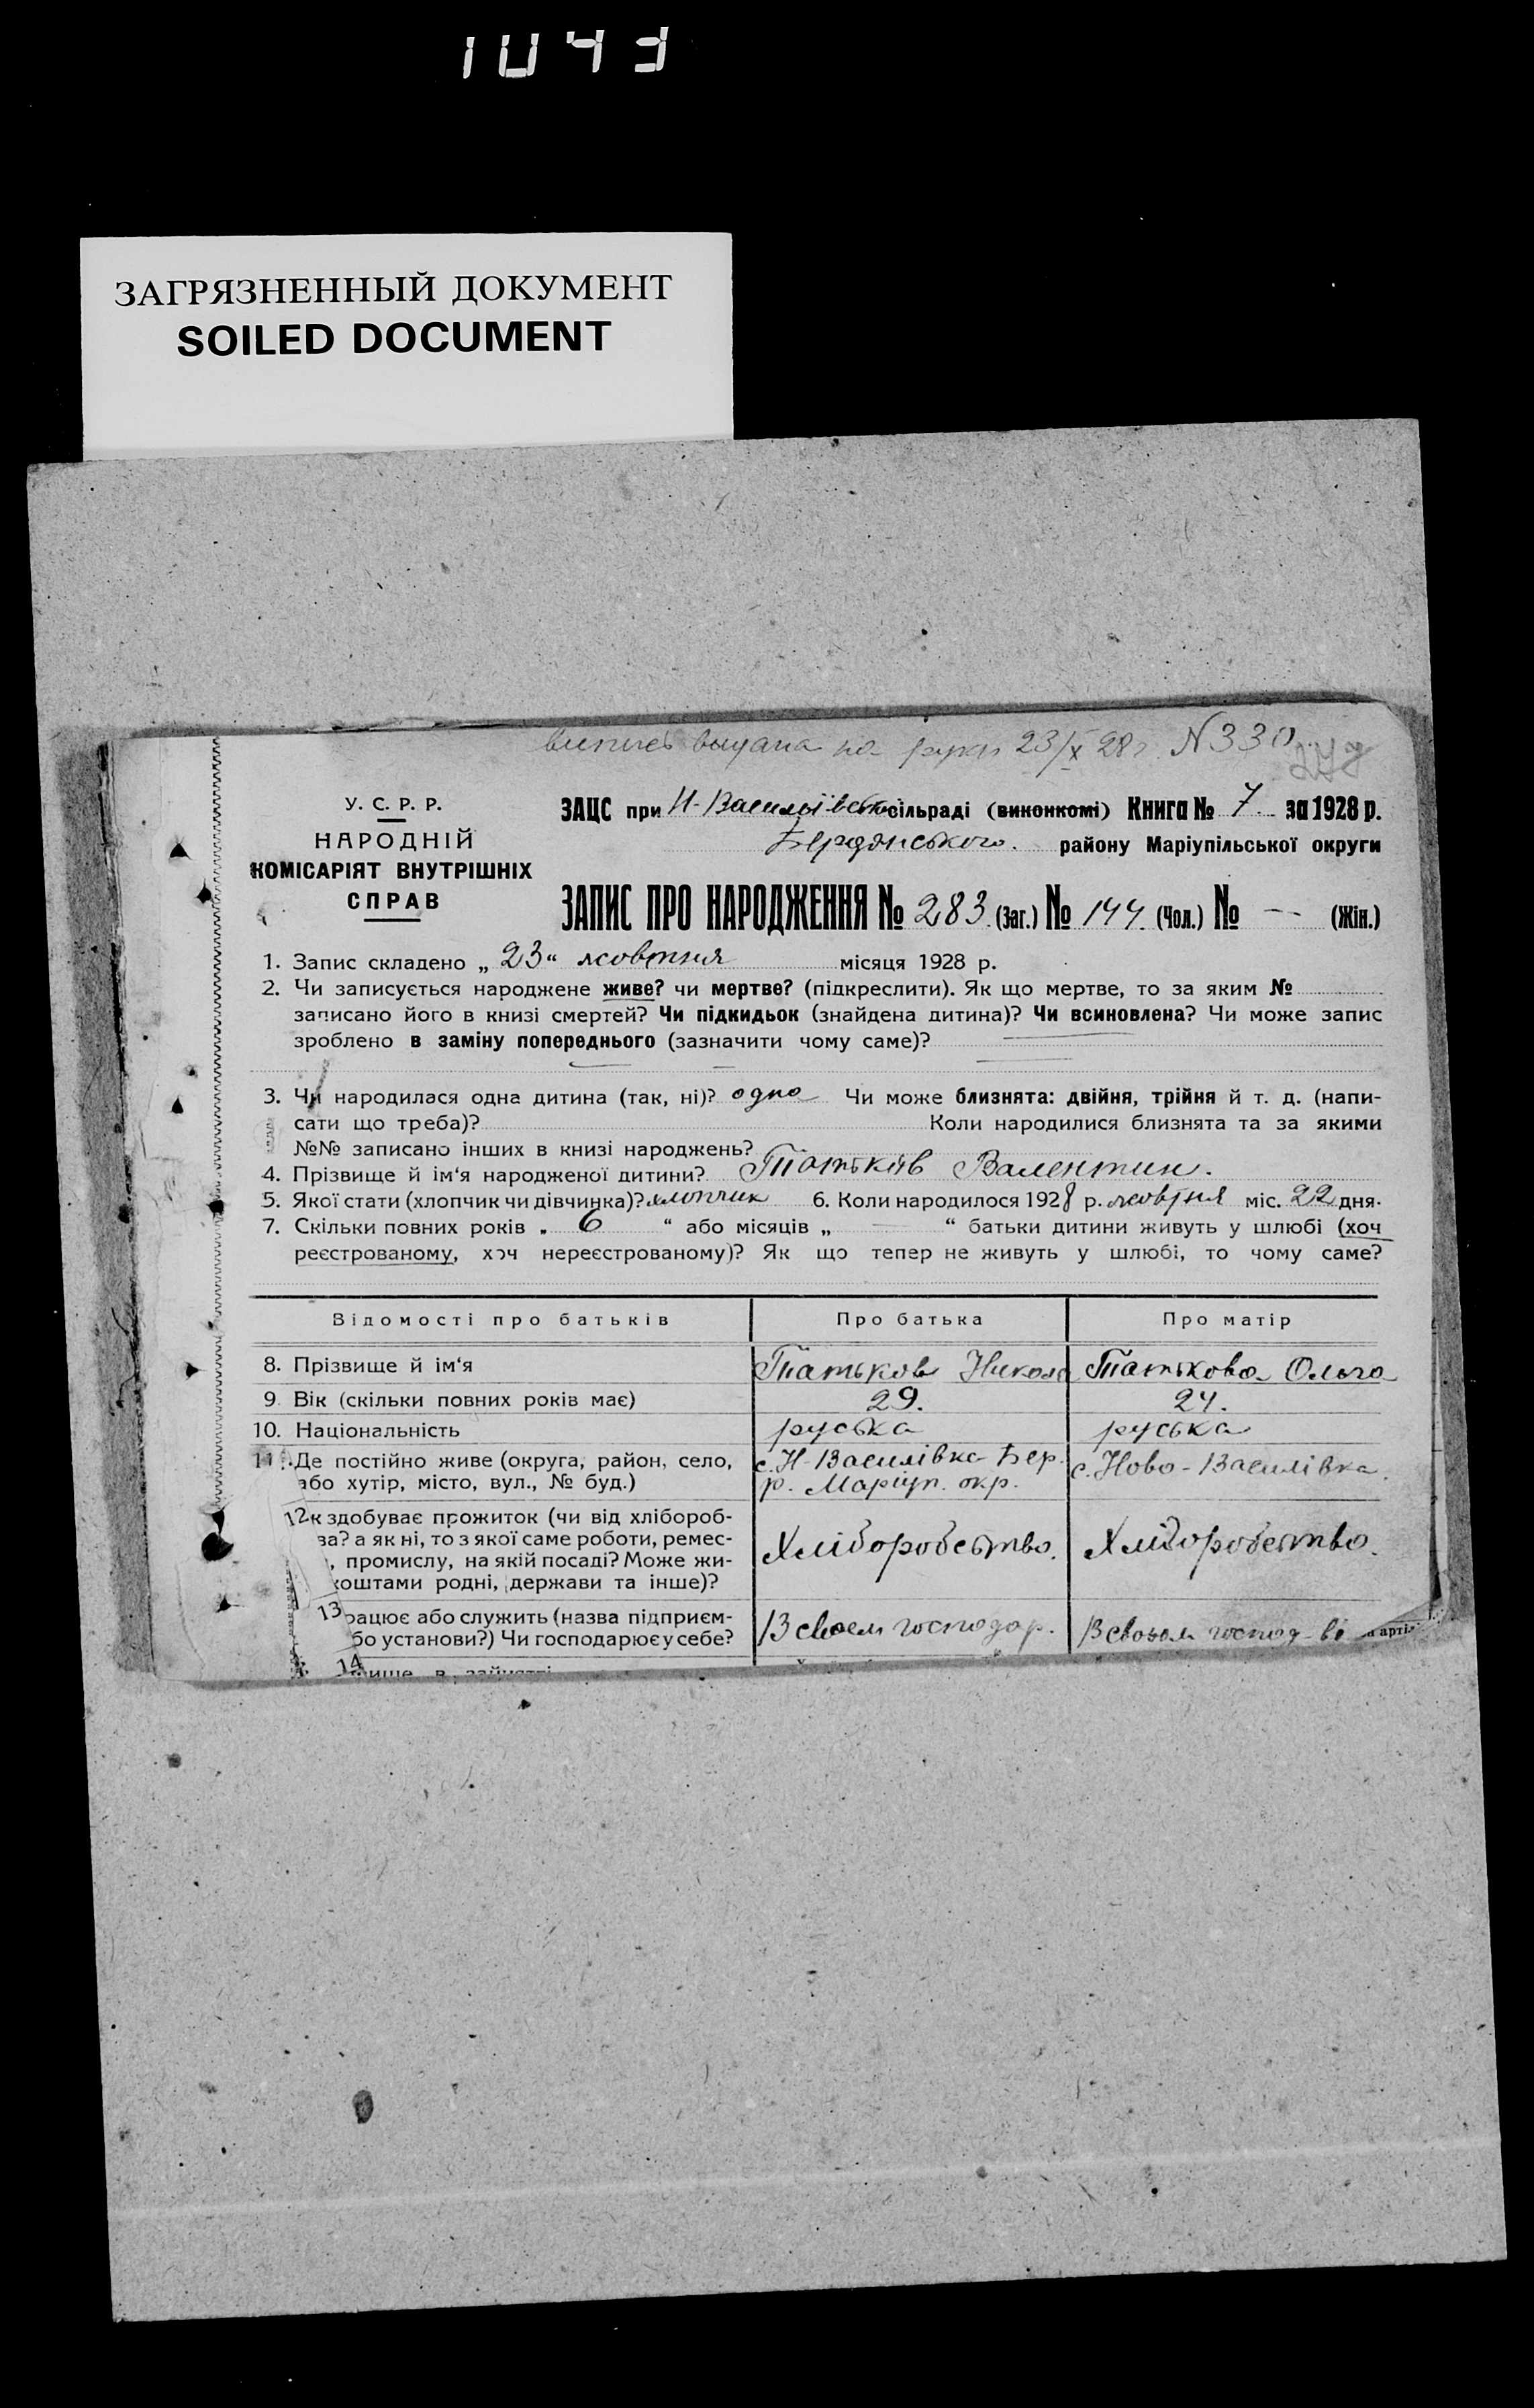 1043
ЗАГРЯЗНЕННЫЙ ДОКУМЕНТ
SOILED DOCUMENT
выпись выдана на руки 23/X 28 г. N 330
У. С. Р. Р.
НАРОДНІЙ
КОМІСАРІЯТ ВНУТРІШНІХ
СПРАВ
ЗАЦС при Н-Васильївськ сільраді (виконкомі) Книга № 7 за 1928 р.
Бердянського району Маріупільської округи
ЗАПИС ПРО НАРОДЖЕННЯ № 283 (Заг.) № 144 (Чол.) № -- (Жін.)
1. Запис складено „ 23 “ жовтня місяця 1928 р.
2. Чи записується народжене живе? чи мертве? (підкреслити). Як що мертве, то за яким №
записано його в книзі смертей? Чи підкидьок (знайдена дитина)? Чи всиновлена? Чи може запис
зроблено в заміну попереднього (зазначити чому саме)?
3. Чи народилася одна дитина (так, ні)? одна Чи може близнята: двійня, трійня й т. д. (напи-
сати що треба)? Коли народилися близнята та за якими
№№ записано інших в книзі народжень?
4. Прізвище й ім‘я народженої дитини? Татьків Валентин.
5. Якої стати (хлопчик чи дівчинка)? хлопчик 6. Коли народилося 1928 р. жовтня міс. 22 дня.
7. Скільки повних років „ 6 “ або місяців „ — “ батьки дитини живуть у шлюбі (хоч
реєстрованому, хоч нереєстрованому)? Як що тепер не живуть у шлюбі, то чому саме?
Відомості про батьків Про батька Про матір
8. Прізвище й ім‘я Татьков Никола Татькова Ольга
9. Вік (скільки повних років має) 29. 24.
10. Національність руська руська
11. Де постійно живе (округа, район, село, с. Н-Василівка Бер. с. Ново-Василівка.
або хутір, місто, вул., № буд.) р. Маріуп. окр.
12 к здобуває прожиток (чи від хлібороб-
ва? а як ні, то з якої саме роботи, ремес- Хліборобство. Хліборобство.
, промислу, на якій посаді? Може жи-
коштами родні, держави та інше)?
13 рацює або служить (назва підприєм- В своем господар. В своєм господ-ві
бо установи?) Чи господарює у себе? арті
14 ище в зайнятті